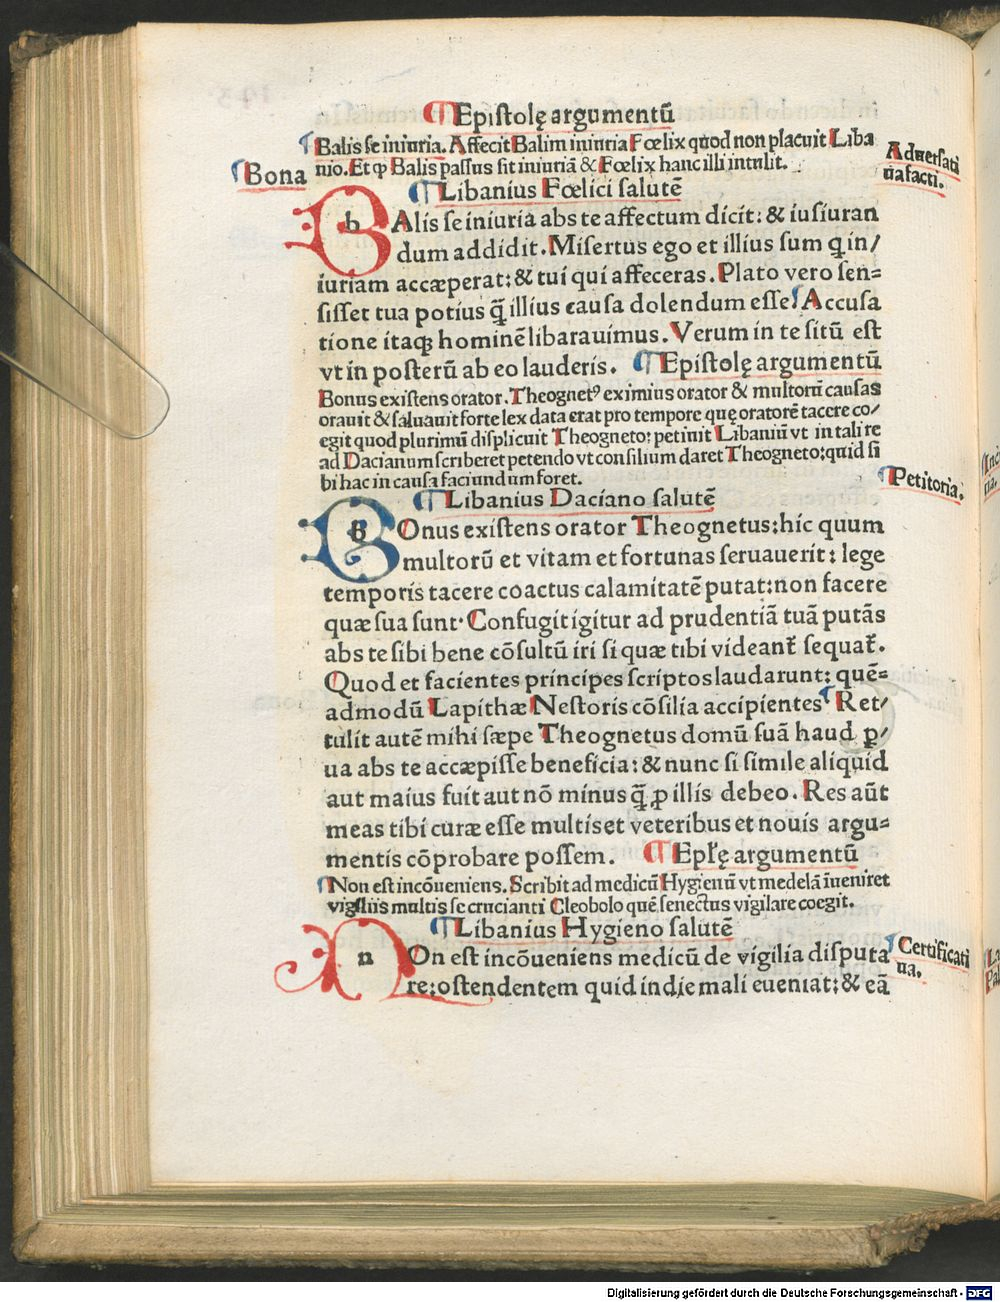 ¶Epistolę argumentū
¶Balis se iniuria. Affecit Balim iniuria Fœlix quod non placuit Liba
nio. Et ꝙ Balis passus sit iniuriā & Fœlix hanc illi intulit.
Aduersati
ua facti.
¶Bona
¶Libanius Fœlici salutē
bAlis se iniuria abs te affectum dicit: & iusiuran
dum addidit. Misertus ego et illius sum q̄ in/
iuriam accæperat: & tui qui affeceras. Plato vero sen=
sisset tua potius q̄ illius causa dolendum esse. ¶Accusa
tione itaqꝫ hominē libarauimus. Verum in te sitū est
vt in posterū ab eo lauderis. ¶Epistolę argumentū
Bonus existens orator. Theognetꝰ eximius orator & multorū causas
orauit & saluauit forte lex data erat pro tempore quę oratorē tacere co/
egit quod plurimū displicuit Theogneto: petiuit Libaniū vt in tali re
ad Dacianum scriberet petendo vt consilium daret Theogneto: quid si
bi hac in causa faciundum foret.
¶Petitoria.
¶Libanius Daciano salutē
bOnus existens orator Theognetus: hic quum
multorū et vitam et fortunas seruauerit: lege
temporis tacere coactus calamitatē putat: non facere
quæ sua sunt. Confugit igitur ad prudentiā tuā putās
abs te sibi bene cōsultū iri si quæ tibi videant᷑ sequat᷑.
Quod et facientes principes scriptos laudarunt: quē=
admodū Lapithæ Nestoris cōsilia accipientes ¶Ret/
tulit autē mihi sæpe Theognetus domū suā haud ꝑ/
ua abs te accæpisse beneficia: & nunc si simile aliquid
aut maius fuit aut nō minus q̄ ꝓ illis debeo. Res aūt
meas tibi curæ esse multis et veteribus et nouis argu=
mentis cōprobare possem. ¶Epłę argumentū
¶Non est incōueniens. Scribit ad medicū Hygienū vt medelā īueniret
vigiliis multis se crucianti Cleobolo quē senectus vigilare coegit.
¶Libanius Hygieno salutē
¶Certificati
ua.
nOn est incōueniens medicū de vigilia disputa
re: ostendentem quid indie mali eueniat: & eā
Digitalisierung gefördert durch die Deutsche Forschungsgemeinschaft - DFG